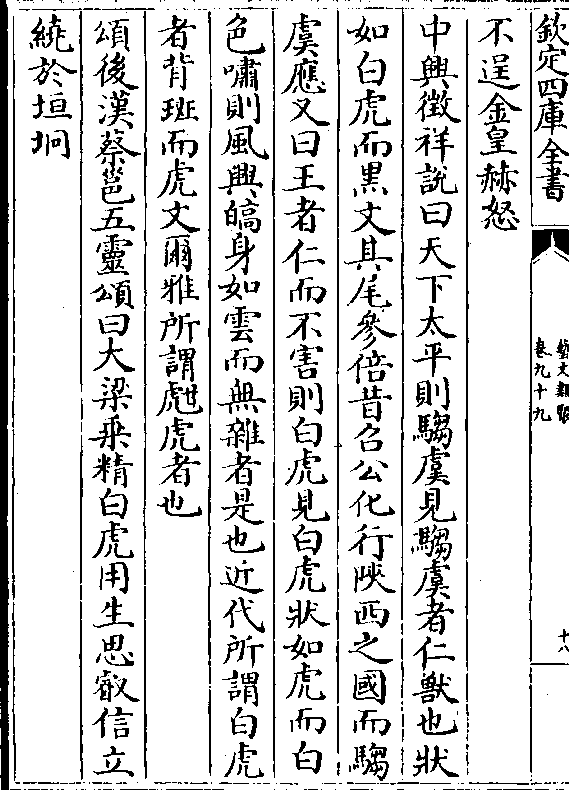 欽定四庫全書
藝文類聚
卷九十九
十八
不逞金皇赫怒
中興徵祥說曰天下太平則騶虞見騶虞者仁獸也狀
如白虎而黒文其尾參倍昔召公化行陜西之國而騶
虞應又曰王者仁而不害則白虎見白虎狀如虎而白
色嘯則風興皜身如雲而無雜者是也近代所謂白虎
者背斑而虎文爾雅所謂虪虎者也
頌後漢蔡邕五靈頌曰大梁乘精白虎用生思叡信立
繞於垣坰